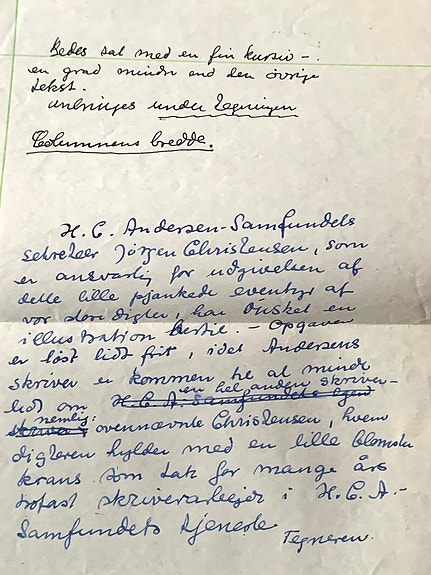 Bedes sat med en fin kursiv –
en grad mindre end den øvrige
tekst.
anbringes under tegningen
Columnens bredde.
H. C. Andersen-Samfundets
sekretær Jörgen Christensen, som
er ansvarlig for udgivelsen af
dette lille pjankede eventyr af
vor store digter, har ønsket en
illustration hertil. – Opgaven
er løst lidt frit, idet Andersens
skriver er kommen til at minde
lidt om en hel anden skriver –
H. C. A. Samfundets egen
skriver nemlig: ovennævnte Christensen, hvem
digteren hylder med en lille blomster
krans som tak for mange års
trofast skriverarbejde i H. C. A.-
Samfundets tjeneste.
Tegneren.